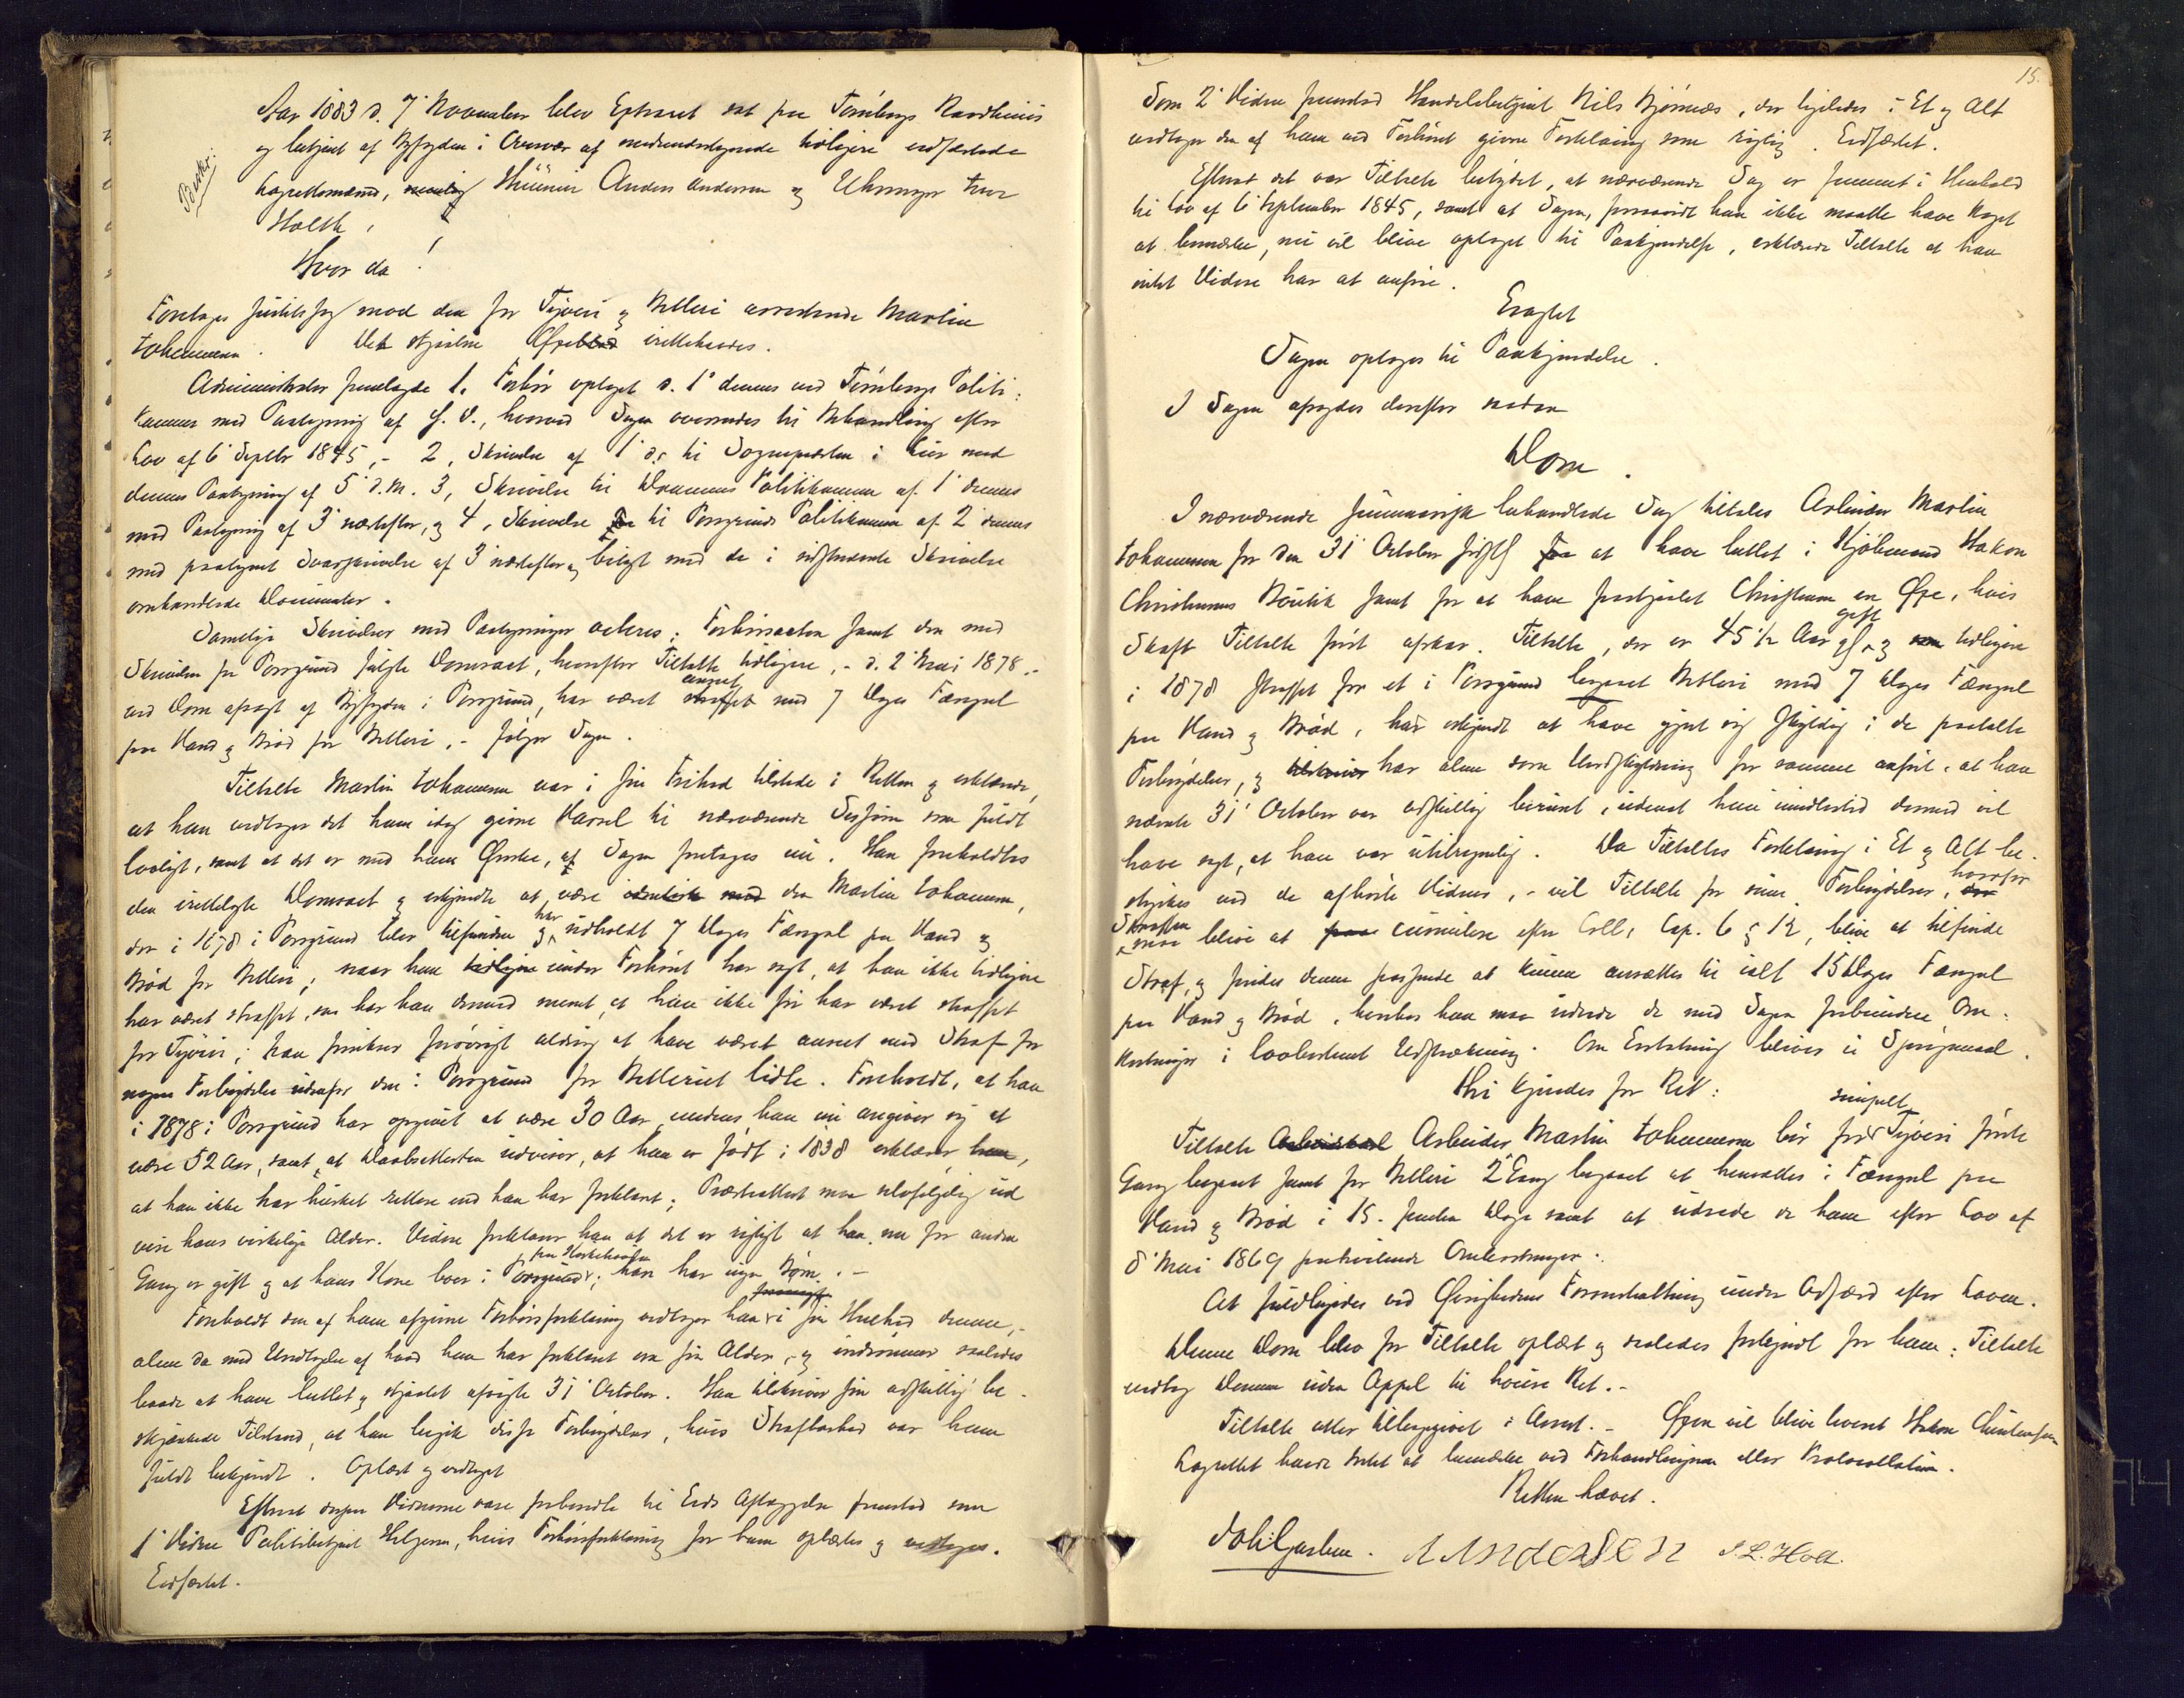 Aar 1883 d. 7' November blev Extraret sat paa Tønsbergs Raadhuus
og betjent af Byfogden i Overvær af medunderskrevne tidligere edfæstede
Beskr.
Lagrettesmænd, nemlig Anders Andersen og Uhrmager
Holth,
Hvor da!
Foretoges Justitssag mod den for Tyveri og Betleri arresterede Martin
Johannesen. Det stjaalne Øxeblad irettehavdes.
Administrator fremlagde 1, Forhør optaget d. 1' dennes ved Tønsbergs Politi-
kammer med Paategning af G. D., hvorved Sagen oversendes til Behandling efter
Lov af 6' Septbr 1845, - 2, Skrivelse af 1' ds til Sognepræsten i med
dennes Paategning af 5' d. M. 3, Skrivelse til Drammens Politikammer af 1' dennes
med Paategning af 3' næstefter, og 4, Skrivelse fra til Porsgrunds Politikammer af 2' dennes
med paategnet Svarskrivelse af 3' næstefter og bilagt med de i sidstnævnte Skrivelse
omhandlede Documenter.
Samtlige Skrivelser med Paategninger acteres; Forhørsacten samt den med
Skrivelsen fra Porsgrund fulgte Domsact, hvorefter Tiltalte tidligere, - d. 2' Mai 1878, -
anseet
ved Dom afsagt af Byfogden i Porsgrund, har været straffet med 7 Dages Fængsel
paa Vand og Brød for Betleri, - følger Sagen.
Tiltalte Martin Johannesen var i fri Frihed tilstede i Retten og erklærede,
at han vedtager det ham idag givne Varsel til nærværende Session som fuldt
lovligt, samt at det er med hans Ønske, at Sagen foretages nu. Han foreholdtes
den irettelagte Domsact og erkjendte at være identisk med den Martin Johannesen,
har
der i 1878 i Porsgrund blev tilfunden og udholdt 7 Dages Fængsel paa Vand og
Brød for Betleri; naar han tidligere under Forhøret har sagt, at han ikke tidligere
har været straffet, saa har han dermed meent, at han ikke før har været straffet
for Tyveri; han forsikrer forøvrigt aldrig at have været anseet med Straf for
nogen Forbrydelse udenfor den i Porsgrund for Betleriet lidte. Foreholdt, at han
i 1878 i Porsgrund har opgivet at være 30 Aar, medens han nu angiver sig at
være 52 Aar, samt at Daabsattesten udviser, at han er født i 1838 erklærer han,
at han ikke har husket rettere end han har forklaret; Præsteattest maa selvfølgelig ud
vise hans virkelige Alder. Videre forklarer han at det er rigtigt at han nu for anden
paa
Gang er gift og at hans Kone boer i Porsgrund; han har ingen Børn. -
Foreholdt den af ham afgivne Forhørsforklaring vedtager han i sin Heelhed denne, -
alene da med Undtagelse af hvad han har forklaret om sin Alder, - og indrømmer saaledes
baade at have betlet og stjaalet afvigte 31' October. Han tilskriver sin adskillig be-
skjænkede Tilstand, at han begik disse Forbrydelser, hvis Strafbarhed var ham
fuldt bekjendt. Oplæst og vedtaget
Efterat derpaa Vidnerne vare forberedte til Eds Aflæggelse fremstod som
1' Vidne Politibetjent Helgesen, hvis Forhørsforklaring for ham oplæstes og vedtoges.
Edfæstet.
15.
Som 2' Vidne fremstod Handelsbetjent Nils Bjørnæs, der ligeledes i Et og Alt
vedtager den af ham ved Forhøret givne Forklaring som rigtig. Edfæstet.
Efterat det var Tiltalte betydet, at nærværende Sag er fremmet i Henhold
til Lov af 6' September 1845, samt at Sagen, forsaavidt han ikke maatte have Noget
at bemærke, nu vil blive optaget til Paakjendelse, erklærede Tiltalte at han
intet Videre har at anføre.
Eragtet
Sagen optages til Paakjendelse.
I Sagen afsagdes derefter saadan
Dom.
I nærværende summarisk behandlede Sag tiltales Arbeider Martin
Johannesen for den 31' October sidstl for at have betlet i Kjøbmand Hakon
Christensens Boutik samt for at have frastjaalet Christensen en Øxe, hvis
gift
Skaft Tiltalte først afskar. Tiltalte, der er 45 1/2 Aar gl. og som tidligere
i 1878 straffet for et i Porsgrund begaaet Betleri med 7 Dages Fængsel
paa Vand og Brød, har erkjendt at have gjort sig skyldig i de paatalte
Forbrydelser, og tilskriver har alene som Undskyldning for samme anført, at han
nævnte 31' October var adskillig beruset, uden at han imidlertid dermed vil
have sagt, at han var utilregnelig. Da Tiltaltes Forklaring i Et og Alt be-
hvorfor
styrkes ved de afhørte Vidner, - vil Tiltalte for sine Forbrydelser, der
Straffen
maa blive at cumulere efter Crll. Cap. 6 § 12, blive at tilfinde
Straf, og findes denne passende at kunne ansættes til ialt 15 Dages Fængsel
paa Vand og Brød, hvorhos han maa udrede de med Sagen forbundne Om-
kostninger i lovbestemt Udstrækning. Om Erstatning bliver ei Spørgsmaal.
Thi kjendes for Ret:
simpelt
Tiltalte Arbeider Martin Johannesen bør for Tyveri første
Gang begaaet samt for Betleri 2' Gang begaaet at hensættes i Fængsel paa
Vand og Brød i 15. femten Dage samt at udrede de ham efter Lov af
8' Mai 1869 paahvilende Omkostninger.
At fuldbyrdes ved Øvrighedens Foranstaltning under Adfærd efter Loven.
Denne Dom blev for Tiltalte oplæst og saaledes forkyndt for ham; Tiltalte
vedtog Dommen uden Appel til høiere Ret. -
Tiltalte atter tilbagegivet i Arrest. - Øxen vil blive leveret Hakon Christensen
Lagrettet havde Intet at bemærke ved Forhandlingerne eller Protocollationen.
Retten hævet.
A ANdERSEN